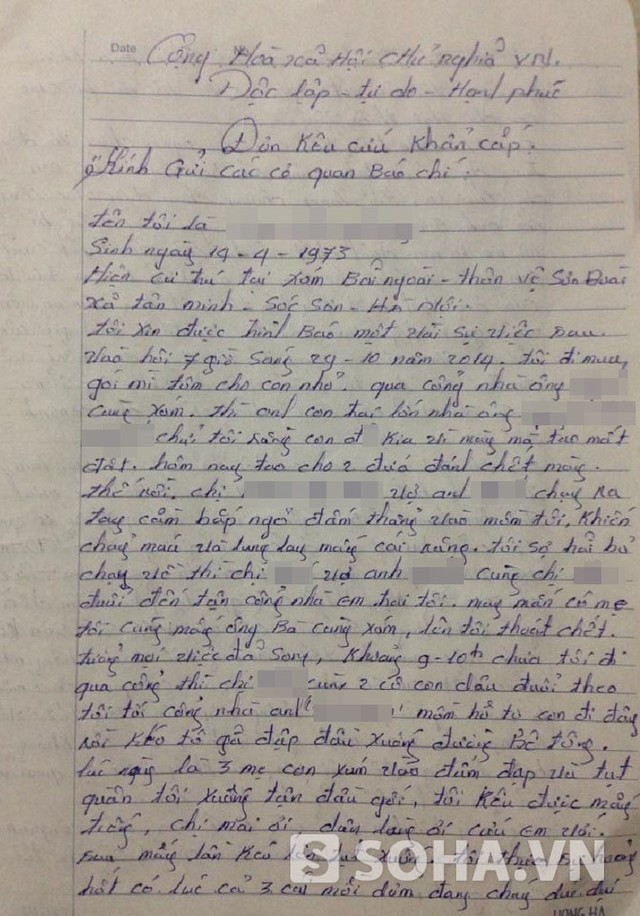 Date
Cộng Hoà xã Hội chủ nghĩa VN.
Độc lập - tự do - Hạnh phúc
Đơn Kêu cứu Khẩn cấp.
Kính Gửi các cơ quan Báo chí.
tên tôi là
Sinh ngày 19-4-1973
Hiện cư trú tại xóm Bái ngoài - thôn vệ Sơn Đoài
xã tân minh - Sóc Sơn - Hà Nội.
tôi xin được trình Báo một vài Sự việc sau.
vào hồi 7 giờ sáng 29-10 năm 2014. tôi đi mua
gói mì tôm cho con nhỏ. qua cổng nhà ông
cùng xóm. thì anh con trai lớn nhà ông
chửi tôi rằng con đ kia vì mày mà tao mất
đất. hôm nay tao cho 2 đứa đánh chết mày.
thế rồi. chị vợ anh chạy ra
tay cầm bắp ngô đấm thẳng vào mồm tôi. khiến
chảy máu và lung lay mấy cái răng. tôi sợ hãi bỏ
chạy về thì chị vợ anh cùng chị
đuổi đến tận cổng nhà em trai tôi. may mắn có mẹ
tôi cùng mấy ông Bà cùng xóm, lên tôi thoát chết.
tưởng mọi việc đã Song, Khoảng 9-10th chưa tôi đi
qua cổng thì chị cùng 2 cô con dâu đuổi theo
tôi tới cổng nhà anh mồm hô tụ con đi đây
rồi kéo tô gô đập đầu xuống đường Bê tông.
lúc này là 3 mẹ con xúm vào đấm đạp và tụt
quần tôi xuống tận đầu gối, tôi kêu được mấy
tiếng, chị mai ơi dân làng ơi cứu em với.
Sau mấy lần Kéo lên tụt xuống
hốt có lúc cả 3 đang chạy
SOHA.VN
HONG HÀ